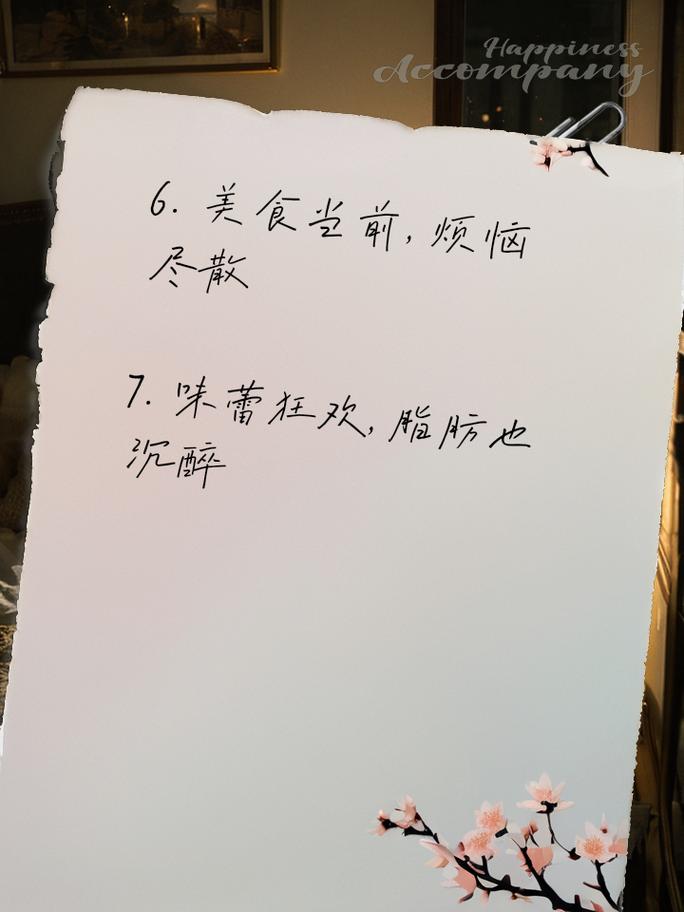 Happiness
Accompany
6. 美食当前,烦恼
尽散
7. 味蕾狂欢,脂肪也
沉醉